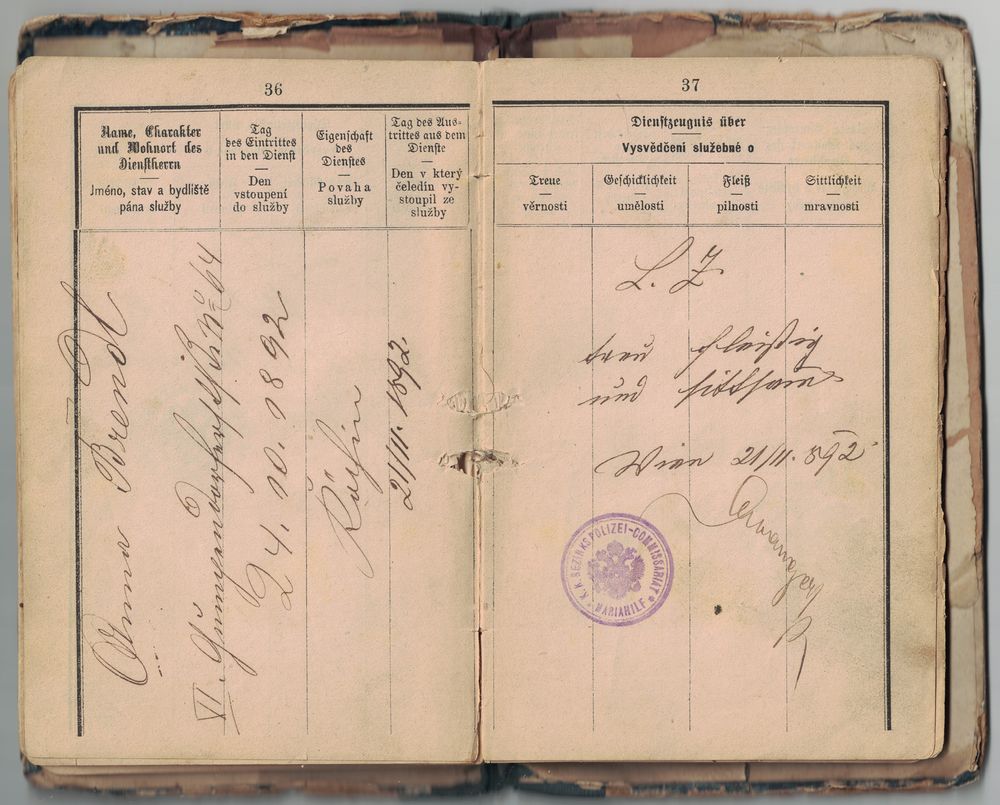 36
Name, Charakter
und Wohnort des
Dienstherrn
Jméno, stav a bydliště
pána služby
Tag
des Eintrittes
in den Dienst
Den
vstoupení
do služby
Eigenschaft
des
Dienstes
Povaha
služby
Tag des Aus-
trittes aus dem
Dienste
Den v který
čeledín vy-
stoupil ze
služby
Anna Brendl
VI. Gumpendorferstraße № 64
24. 10. 1892
Köchin
21/11. 1892.
37
Dienstzeugnis über
Vysvědčení služebné o
Treue
věrnosti
Geschicklichkeit
umělosti
Fleiß
pilnosti
Sittlichkeit
mravnosti
L. Z.
treu fleißig
und sittsam
Wien 21/11. 892
K. K. BEZIRKS POLIZEI-COMMISSARIAT
* MARIAHILF *